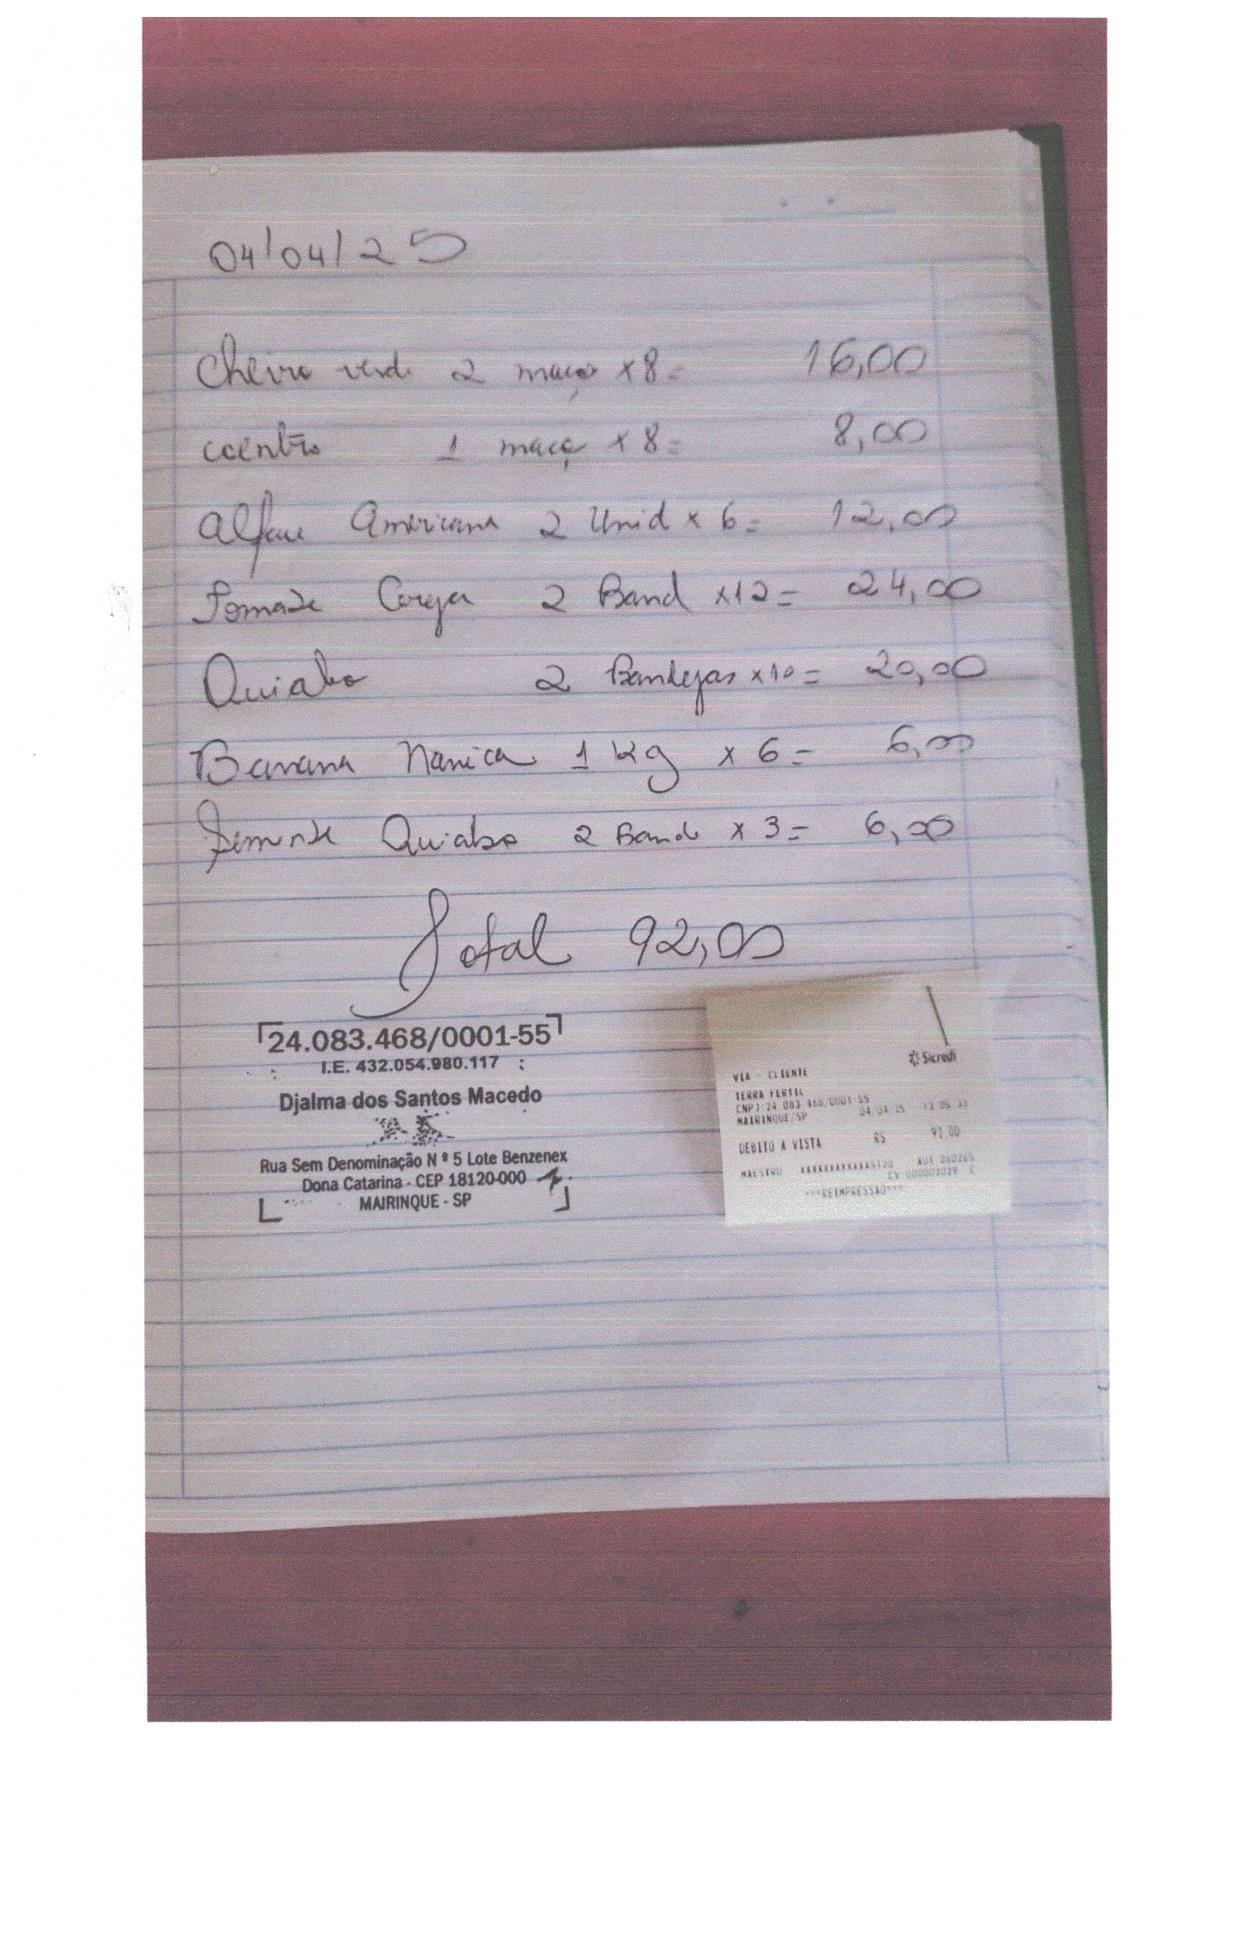 04/04/25
Cheiro verde 2 maços x8= 16,00
coentro 1 maço x8= 8,00
Alface Americana 2 Unid x 6= 12,00
Tomate Cereja 2 Band x12= 24,00
Quiabo 2 Bandejas x10= 20,00
Banana Nanica 1 kg x 6= 6,00
Semente Quiabo 2 Band x 3= 6,00
Total 92,00
24.083.468/0001-55
I.E. 432.054.980.117
Djalma dos Santos Macedo
Rua Sem Denominação Nº 5 Lote Benzenex
Dona Catarina - CEP 18120-000
MAIRINQUE - SP
Sicredi
VIA - CLIENTE
TERRA FERTIL
CNPJ:24.083.468/0001-55
MAIRINQUE/SP 04/04/25
DEBITO A VISTA R$ 92,00
MAESTRO
***REIMPRESSAO***